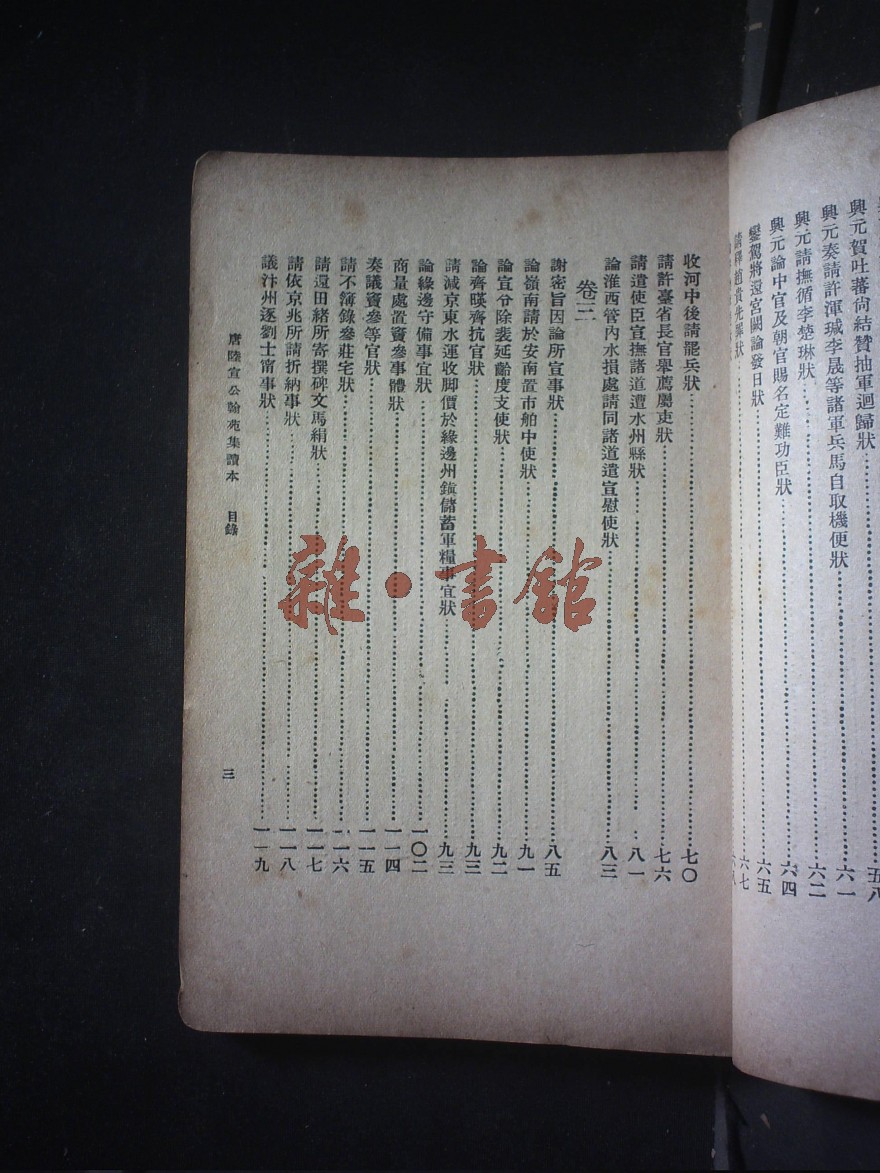 興元賀吐蕃尚結贊抽軍迴歸狀 五八
興元奏請許渾瑊李晟等諸軍兵馬自取機便狀 六一
興元請撫循李楚琳狀 六二
興元論中官及朝官賜名定難功臣狀 六四
鑾駕將還宮闕論發日狀 六五
請釋趙貴先罪狀 六七
六八
收河中後請罷兵狀 七〇
請許臺省長官舉薦屬吏狀 七六
請遣使臣宣撫諸道遭水州縣狀 八一
論淮西管內水損處請同諸道遣宣慰使狀 八三
卷三
謝密旨因論所宣事狀 八五
論嶺南請於安南置市舶中使狀 九一
論宣令除裴延齡度支使狀 九二
論齊暎齊抗官狀 九三
請減京東水運收脚價於緣邊州鎭儲蓄軍糧事宜狀 九三
論緣邊守備事宜狀 一〇二
商量處置竇參事體狀 一一四
奏議竇參等官狀 一一五
請不簿錄參莊宅狀 一一六
請還田緒所寄撰碑文馬絹狀 一一七
請依京兆所請折納事狀 一一八
議汴州逐劉士甯事狀 一一九
唐陸宣公翰苑集讀本 目錄
三
雜·書館